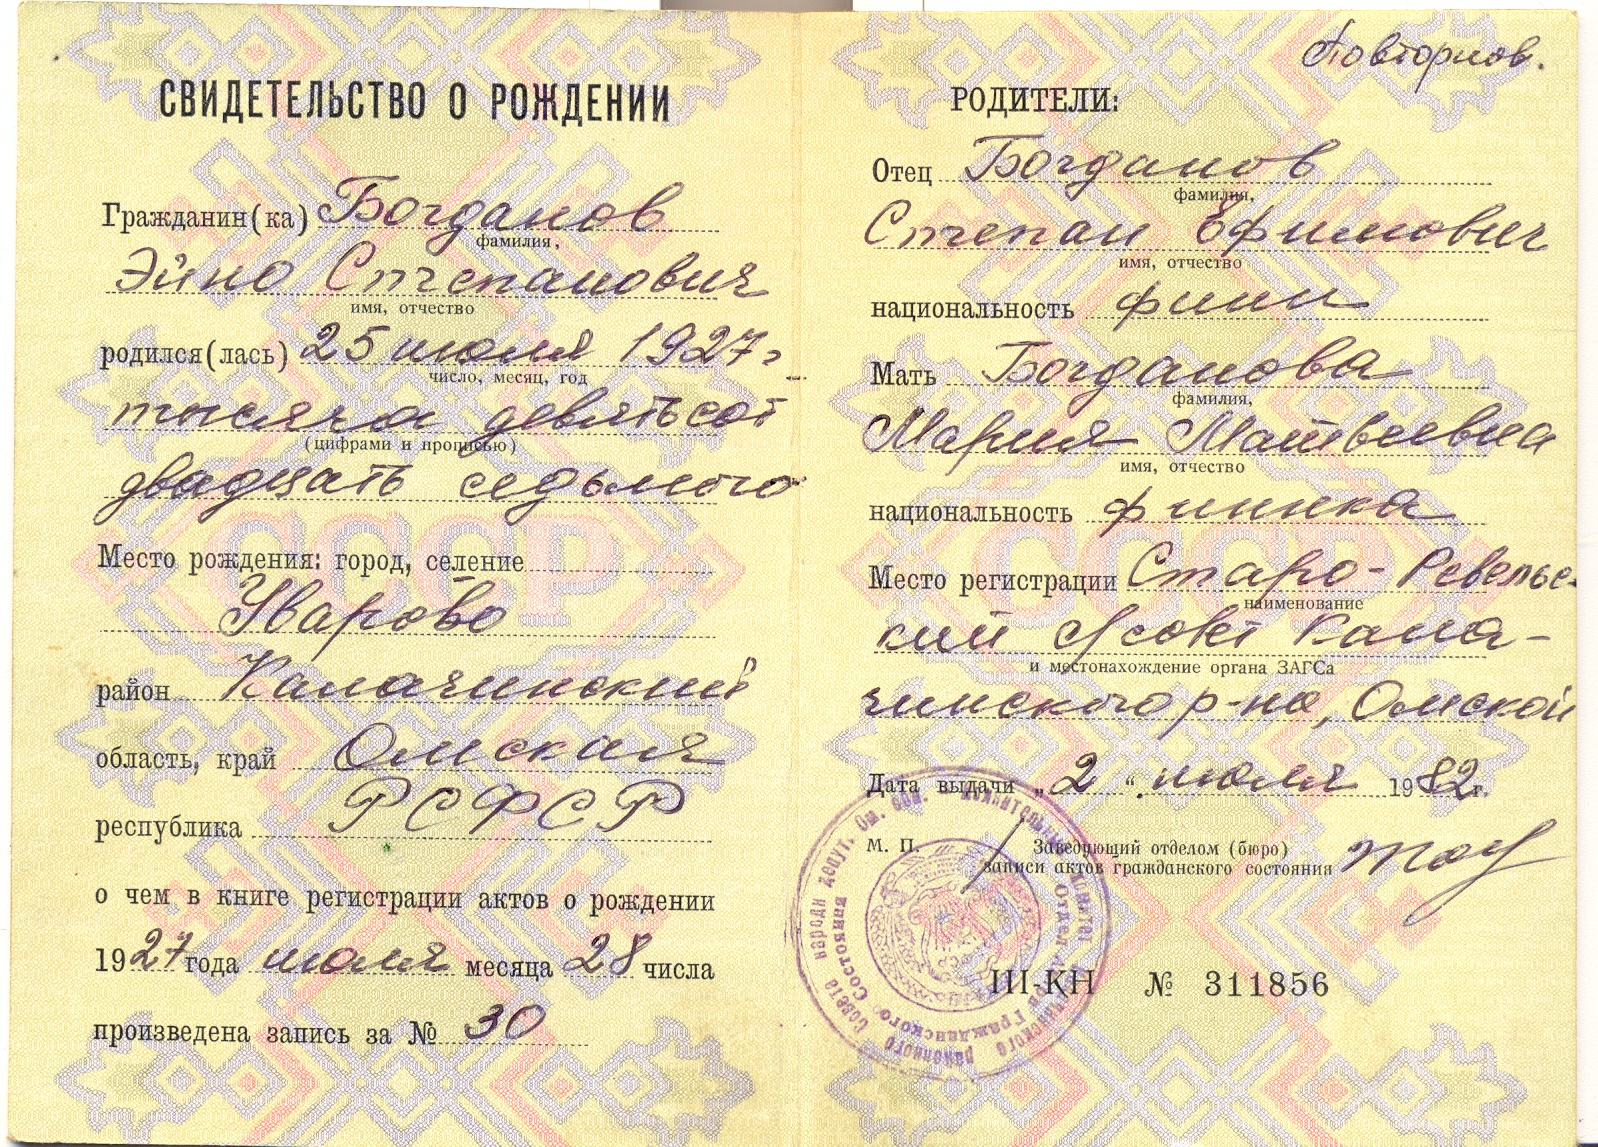 СВИДЕТЕЛЬСТВО О РОЖДЕНИИ
Гражданин(ка) Богданов
фамилия,
Эйно Степанович
имя, отчество
родился(лась) 25 июля 1927 г
число, месяц, год
тысяча девятьсот
(цифрами и прописью)
двадцать седьмого
Место рождения: город, селение
Уварово
район Калачинский
область, край Омская
республика РСФСР
о чем в книге регистрации актов о рождении
1927 года июля месяца 28 числа
произведена запись за № 30
Повторнов.
РОДИТЕЛИ:
Отец Богданов
фамилия,
Степан Ефимович
имя, отчество
национальность финн
Мать Богданова
фамилия,
Мария Матвеевна
имя, отчество
национальность финнка
Место регистрации Старо-Ревельс-
наименование
кий с/совет Кала-
и местонахождение органа ЗАГСа
чинского р-на, Омской
Дата выдачи „2“ июля 1982 г.
М. П.
Заведующий отделом (бюро)
записи актов гражданского состояния
III-КН № 311856